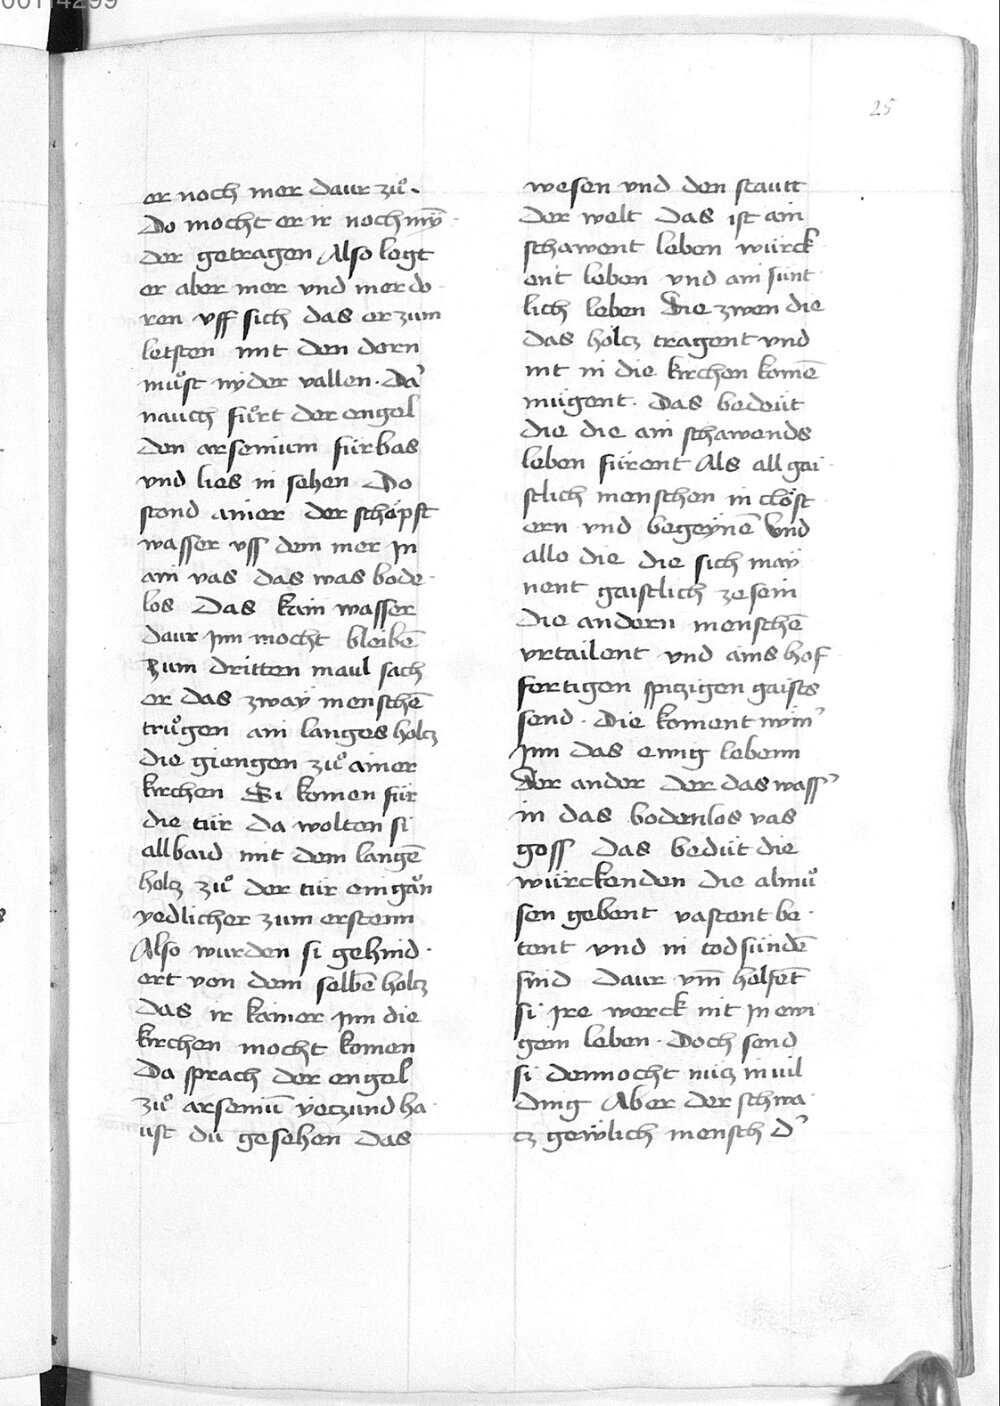 25
er noch mer daur zuͦ.
Do mocht er ir noch mỹ
der getragen Also legt
er aber mer vnd mer do
ren vff sich das er zum
letsten mit den dorn
muͦst nyder vallen. Da'
nauch fuͦrt der engel
den arsenium fürbas
vnd lies in sehen Do
stond ainer der schöpft
wasser vss dem mer jn
ain vas das was bode
los Das kain wasser
daur jnn mocht bleibē
Zum dritten maul sach
er das zway menschē
truͦgen ain langes holcz
die giengen zuͦ ainer
kirchen Si komen für
die tür da wolten si
allbaid mit dem langē
holcz zuͦ der tür eingän
yedlicher zum erstenn
Also wurden si gehind
ert von dem selbē holcz
das ir kainer jnn die
kirchen mocht komen
Da sprach der engel
zuͦ arseniū yeczund ha
ust du gesehen das
wesen vnd den stautt
der welt das ist ain
schawent leben würck
ent leben vnd ain sünt
lich leben Die zwen die
das holcz tragent vnd
nit in die kirchen komē
mügent. Das bedeüt
die die ain schawends
leben fürent Als all gai
stlich menschen in clöst
ern vnd begeynē Vnd
alle die die sich may
nent gaistlich ze sein
die andern menschē
vrtailent vnd ains hof
fertigen spiczigen gaists
send. Die koment nym'
jnn das ewig lebenn
Der ander der das wass'
in das bodenlos vas
goss Das bedüt die
würckenden die almuͦ
sen gebent vastent be
tent vnd in tod sündē
sind Daur vm̄ helfet̄
si jre werck nit jn ewi
gem leben. Doch send
si dennocht nücz in vil
ding Aber der schwa
cz gewlich mensch d'